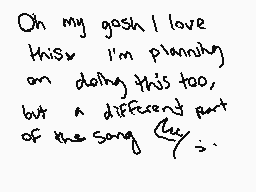 Oh my gosh I love
this. I'm planning
on doing this too,
but a different part
of the song